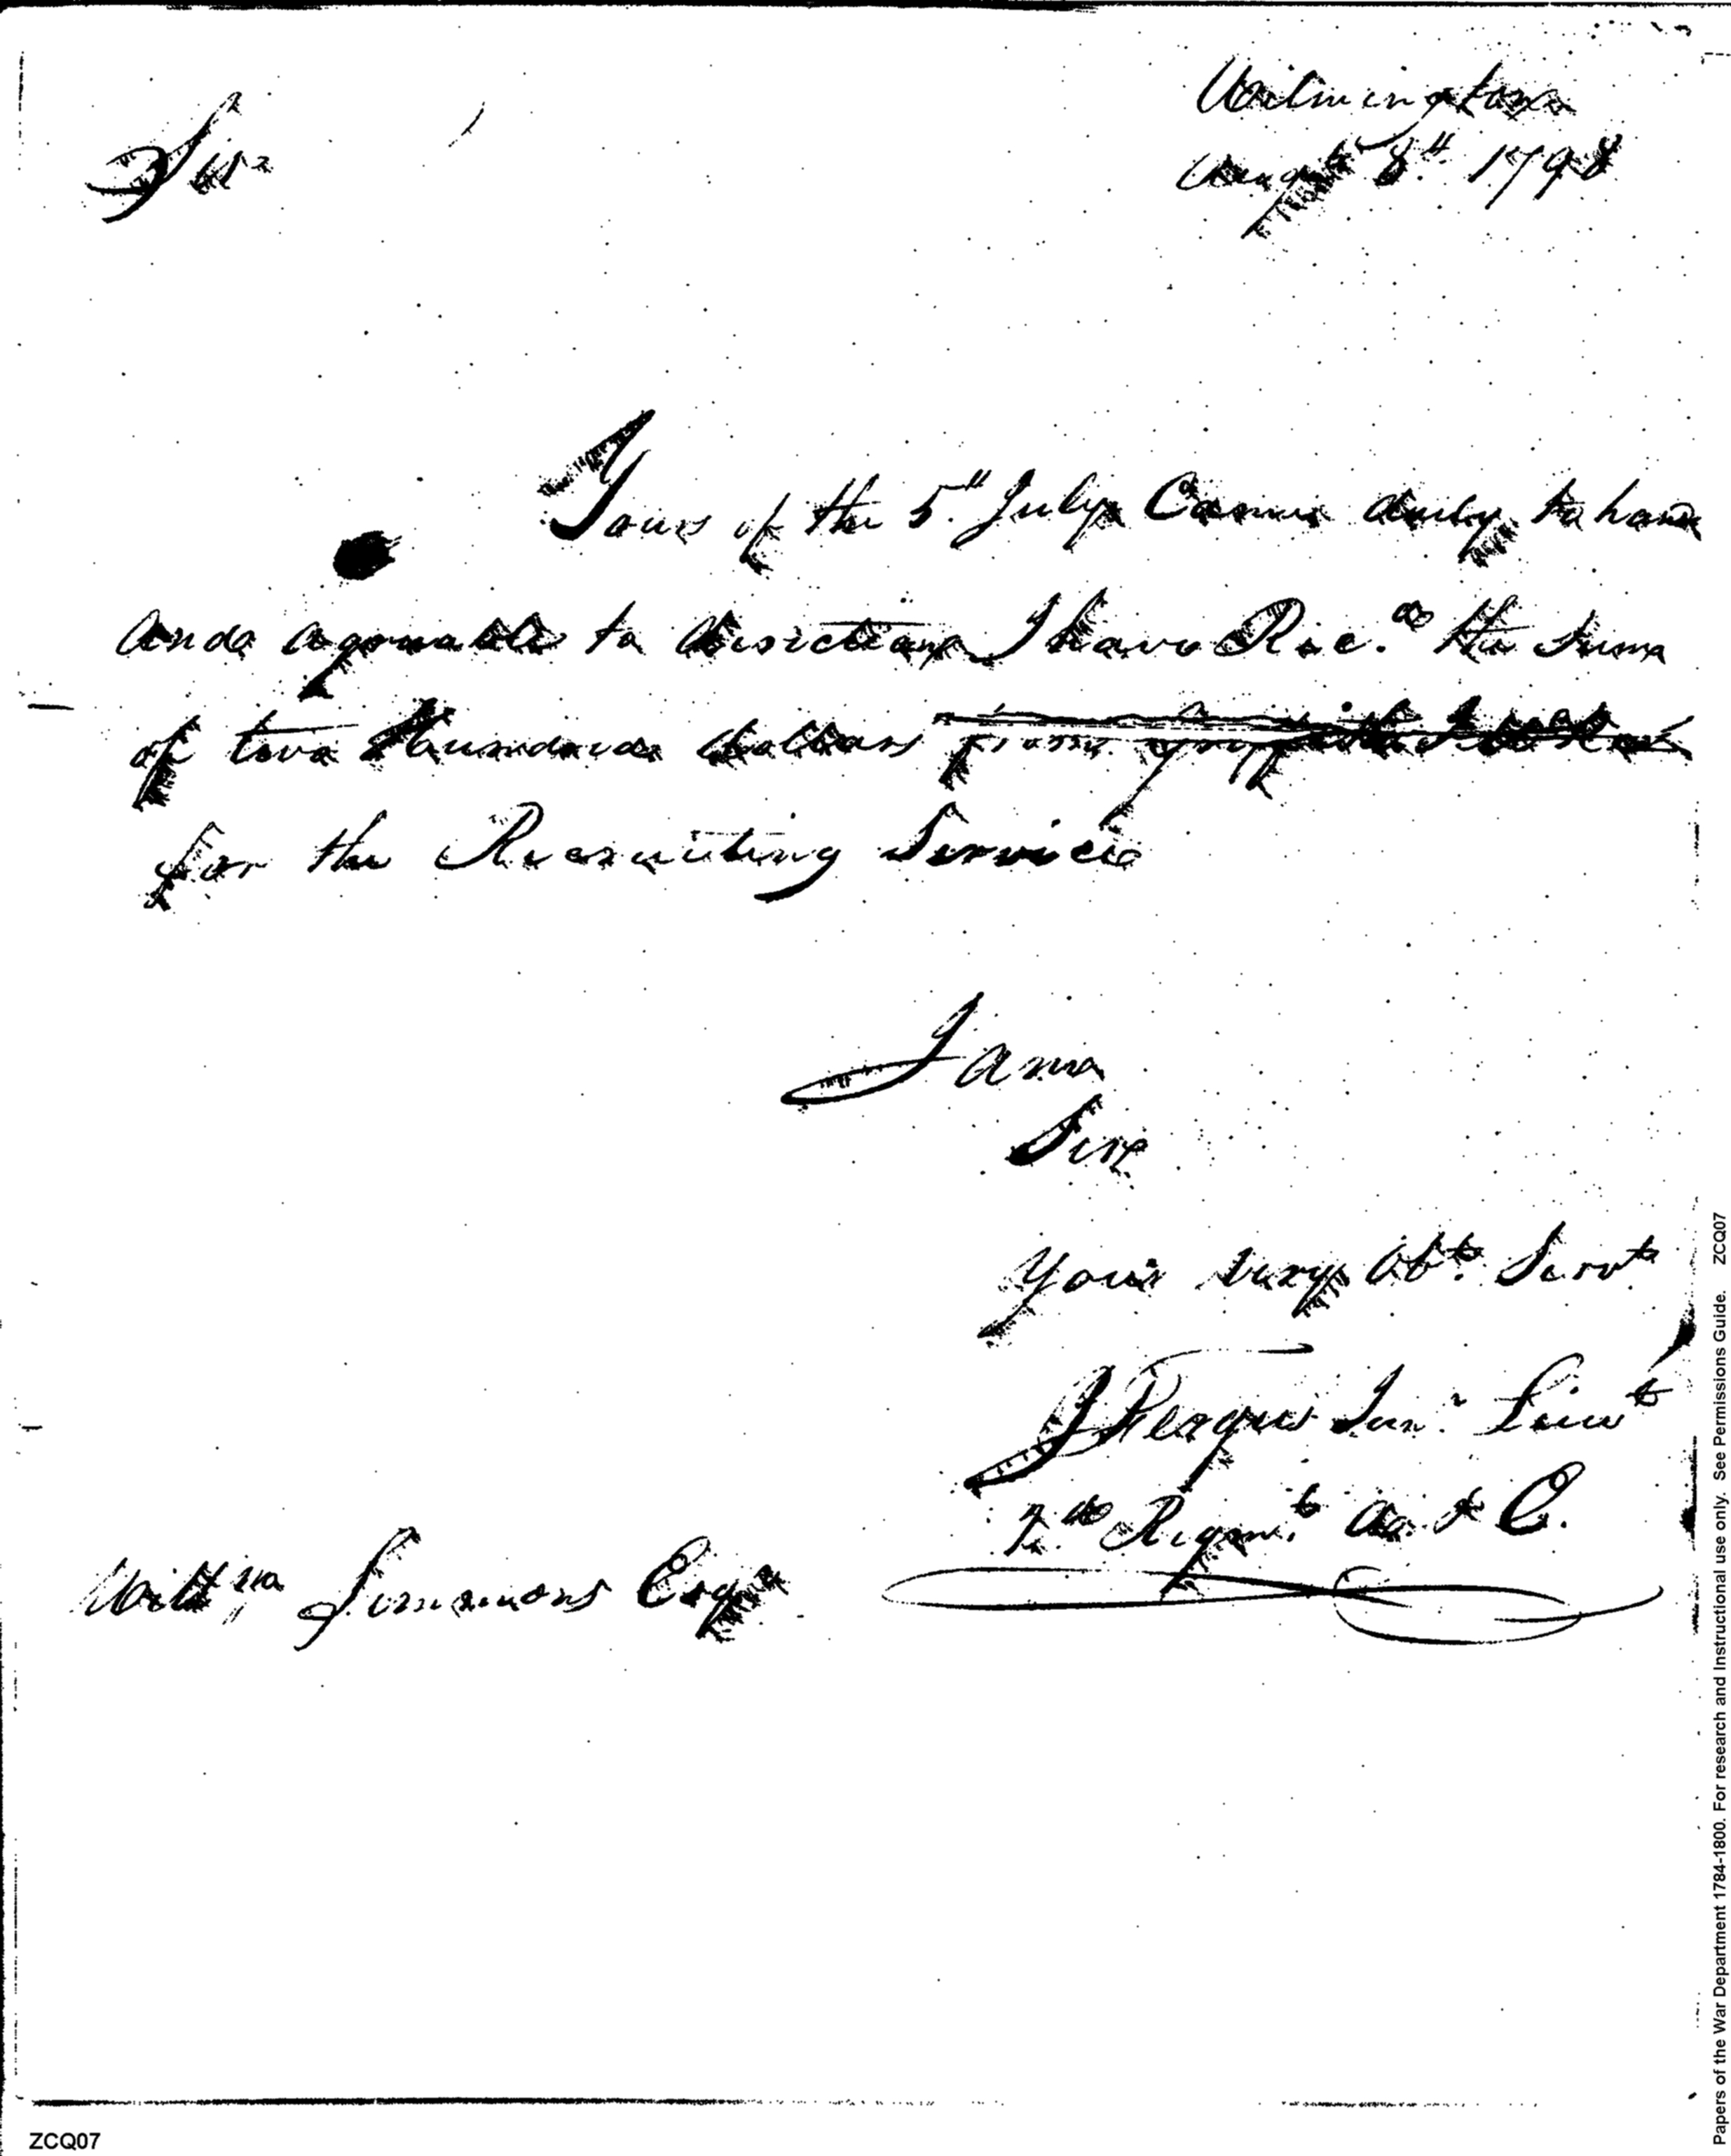 Wilmington
Sir
Augt 8th 1798
Yours of the 5th July Came duly to hand
And agreeable to direction I have Rec.d the Sum
of two Hundred dollars from
for the Recruiting Service
I am
Sir
Your very Obt. Servt
J Fergus Junr. Lieut
2.d Regmt. A. & C.
Willm Simmons Esqr
Papers of the War Department 1784-1800. For research and Instructional use only. See Permissions Guide. ZCQ07
ZCQ07